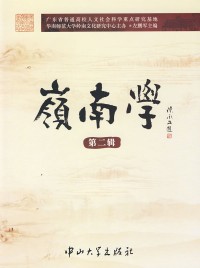 广东省普通高校人文社会科学重点研究基地
华南师范大学岭南文化研究中心主办 · 左鹏军主编
嶺南學
第二辑
中山大学出版社